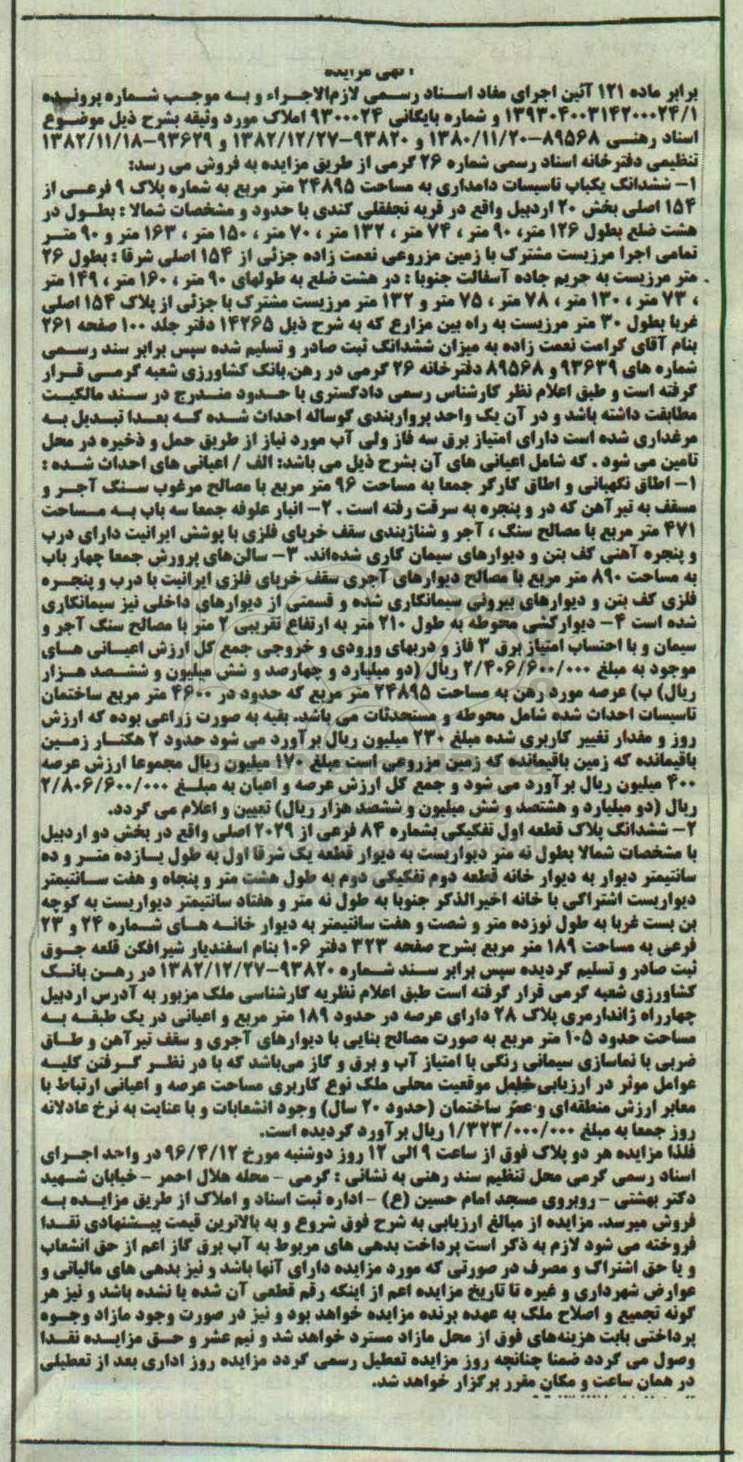 آگهی مزایده
برابر ماده ۱۲۱ آئین اجرای مفاد اسناد رسمی لازم‌الاجراء و به موجب شماره پرونده
۱۳۹۳۰۴۰۰۳۱۴۲۰۰۰۲۴/۱ و شماره بایگانی ۹۳۰۰۰۲۴ املاک مورد وثیقه بشرح ذیل موضوع
اسناد رهنی ۸۹۵۶۸-۱۳۸۰/۱۱/۲۰ و ۹۳۸۲۰-۱۳۸۲/۱۲/۲۷ و ۹۳۶۲۹-۱۳۸۲/۱۱/۱۸
تنظیمی دفترخانه اسناد رسمی شماره ۲۶ گرمی از طریق مزایده به فروش می رسد:
۱- ششدانگ یکباب تاسیسات دامداری به مساحت ۲۴۸۹۵ متر مربع به شماره پلاک ۹ فرعی از
۱۵۴ اصلی بخش ۲۰ اردبیل واقع در قریه نجفقلی کندی با حدود و مشخصات شمالا : بطول در
هشت ضلع بطول ۱۲۶ متر، ۹۰ متر ، ۷۴ متر ، ۱۳۲ متر ، ۷۰ متر ، ۱۵۰ متر ، ۱۶۳ متر و ۹۰ متر
تمامی اجرا مرزیست مشترک با زمین مزروعی نعمت زاده جزئی از ۱۵۴ اصلی شرقا : بطول ۲۶
متر مرزیست به حریم جاده آسفالت جنوبا : در هشت ضلع به طولهای ۹۰ متر ، ۱۶۰ متر ، ۱۴۹ متر
، ۷۳ متر ، ۱۳۰ متر ، ۷۸ متر ، ۷۵ متر و ۱۳۲ متر مرزیست مشترک با جزئی از پلاک ۱۵۴ اصلی
غربا بطول ۳۰ متر مرزیست به راه بین مزارع که به شرح ذیل ۱۴۲۶۵ دفتر جلد ۱۰۰ صفحه ۲۶۱
بنام آقای کرامت نعمت زاده به میزان ششدانگ ثبت صادر و تسلیم شده سپس برابر سند رسمی
شماره های ۹۳۶۳۹ و ۸۹۵۶۸ دفترخانه ۲۶ گرمی در رهن بانک کشاورزی شعبه گرمی قرار
گرفته است و طبق اعلام نظر کارشناس رسمی دادگستری با حدود مندرج در سند مالکیت
مطابقت داشته باشد و در آن یک واحد پرواربندی گوساله احداث شده که بعدا تبدیل به
مرغداری شده است دارای امتیاز برق سه فاز ولی آب مورد نیاز از طریق حمل و ذخیره در محل
تامین می شود . که شامل اعیانی های آن بشرح ذیل می باشد: الف / اعیانی های احداث شده :
۱- اطاق نگهبانی و اطاق کارگر جمعا به مساحت ۹۶ متر مربع با مصالح مرغوب سنگ آجر و
مسقف به تیرآهن که در و پنجره به سرقت رفته است . ۲- انبار علوفه جمعا سه باب به مساحت
۴۷۱ متر مربع با مصالح سنگ ، آجر و شناژبندی سقف خرپای فلزی با پوشش ایرانیت دارای درب
و پنجره آهنی کف بتن و دیوارهای سیمان کاری شده‌اند. ۳- سالن‌های پرورش جمعا چهار باب
به مساحت ۸۹۰ متر مربع با مصالح دیوارهای آجری سقف خرپای فلزی ایرانیت با درب و پنجره
فلزی کف بتن و دیوارهای بیرونی سیمانکاری شده و قسمتی از دیوارهای داخلی نیز سیمانکاری
شده است ۴- دیوارکشی محوطه به طول ۲۱۰ متر به ارتفاع تقریبی ۲ متر با مصالح سنگ آجر و
سیمان و با احتساب امتیاز برق ۳ فاز و دربهای ورودی و خروجی جمع کل ارزش اعیانی های
موجود به مبلغ ۲/۴۰۶/۶۰۰/۰۰۰ ریال (دو میلیارد و چهارصد و شش میلیون و ششصد هزار
ریال) ب) عرصه مورد رهن به مساحت ۲۴۸۹۵ متر مربع که حدود در ۴۶۰۰ متر مربع ساختمان
تاسیسات احداث شده شامل محوطه و مستحدثات می باشد. بقیه به صورت زراعی بوده که ارزش
روز و مقدار تغییر کاربری شده مبلغ ۲۳۰ میلیون ریال برآورد می شود حدود ۲ هکتار زمین
باقیمانده که زمین باقیمانده که زمین مزروعی است مبلغ ۱۷۰ میلیون ریال مجموعا ارزش عرصه
۴۰۰ میلیون ریال برآورد می شود و جمع کل ارزش عرصه و اعیان به مبلغ ۲/۸۰۶/۶۰۰/۰۰۰
ریال (دو میلیارد و هشتصد و شش میلیون و ششصد هزار ریال) تعیین و اعلام می گردد.
۲- ششدانگ پلاک قطعه اول تفکیکی بشماره ۸۴ فرعی از ۲۰۲۹ اصلی واقع در بخش دو اردبیل
با مشخصات شمالا بطول نه متر دیواریست به دیوار قطعه یک شرقا اول به طول یازده متر و ده
سانتیمتر دیوار به دیوار خانه قطعه دوم تفکیکی دوم به طول هشت متر و پنجاه و هفت سانتیمتر
دیواریست اشتراکی با خانه اخیرالذکر جنوبا به طول نه متر و هفتاد سانتیمتر دیواریست به کوچه
بن بست غربا به طول نوزده متر و شصت و هفت سانتیمتر به دیوار خانه های شماره ۲۴ و ۲۳
فرعی به مساحت ۱۸۹ متر مربع بشرح صفحه ۳۲۳ دفتر ۱۰۶ بنام اسفندیار شیرافکن قلعه جوق
ثبت صادر و تسلیم گردیده سپس برابر سند شماره ۹۳۸۲۰-۱۳۸۲/۱۲/۲۷ در رهن بانک
کشاورزی شعبه گرمی قرار گرفته است طبق اعلام نظریه کارشناسی ملک مزبور به آدرس اردبیل
چهارراه ژاندارمری پلاک ۲۸ دارای عرصه در حدود ۱۸۹ متر مربع و اعیانی در یک طبقه به
مساحت حدود ۱۰۵ متر مربع به صورت مصالح بنایی با دیوارهای آجری و سقف تیرآهن و طاق
ضربی با نماسازی سیمانی رنگی با امتیاز آب و برق و گاز می‌باشد که با در نظر گرفتن کلیه
عوامل موثر در ارزیابی موقعیت محلی ملک نوع کاربری مساحت عرصه و اعیانی ارتباط با
معابر ارزش منطقه‌ای و عمر ساختمان (حدود ۲۰ سال) وجود انشعابات و با عنایت به نرخ عادلانه
روز جمعا به مبلغ ۱/۳۲۳/۰۰۰/۰۰۰ ریال برآورد گردیده است.
فلذا مزایده هر دو پلاک فوق از ساعت ۹ الی ۱۲ روز دوشنبه مورخ ۹۶/۴/۱۲ در واحد اجرای
اسناد رسمی گرمی محل تنظیم سند رهنی به نشانی : گرمی - محله هلال احمر - خیابان شهید
دکتر بهشتی - روبروی مسجد امام حسین (ع) - اداره ثبت اسناد و املاک از طریق مزایده به
فروش میرسد. مزایده از مبالغ ارزیابی به شرح فوق شروع و به بالاترین قیمت پیشنهادی نقدا
فروخته می شود لازم به ذکر است پرداخت بدهی های مربوط به آب برق گاز اعم از حق انشعاب
و یا حق اشتراک و مصرف در صورتی که مورد مزایده دارای آنها باشد و نیز بدهی های مالیاتی و
عوارض شهرداری و غیره تا تاریخ مزایده اعم از اینکه رقم قطعی آن شده یا نشده باشد و نیز هر
گونه تجمیع و اصلاح ملک به عهده برنده مزایده خواهد بود و نیز در صورت وجود مازاد وجوه
پرداختی بابت هزینه‌های فوق از محل مازاد مسترد خواهد شد و نیم عشر و حق مزایده نقدا
وصول می گردد ضمنا چنانچه روز مزایده تعطیل رسمی گردد مزایده روز اداری بعد از تعطیلی
در همان ساعت و مکان مقرر برگزار خواهد شد.